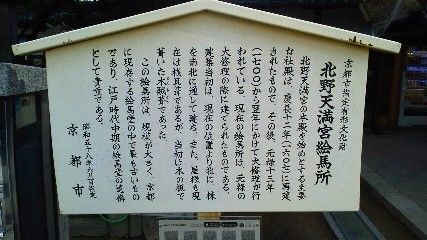 京都市指定有形文化財
北野天満宮絵馬所
北野天満宮の本殿を始めとする主要
な社殿は、慶長十二年(一六〇七)に再建
されたもので、その後、元禄十三年
(一七〇〇)から翌年にかけて大修理が行
われている。現在の絵馬所は、元禄の
大修理の際に建てられたものである。
建築当初は、現在の位置より北に、棟
を南北に通して建ち、また、屋根も現
在は桟瓦葺であるが、当初は木の板で
葺いた木賊葺であった。
この絵馬所は、規模が大きく、京都
に現存する絵馬堂の中で最も古いもの
であり、江戸時代中期の絵馬堂の遺構
として貴重である。
昭和五十八年六月一日指定
京都市